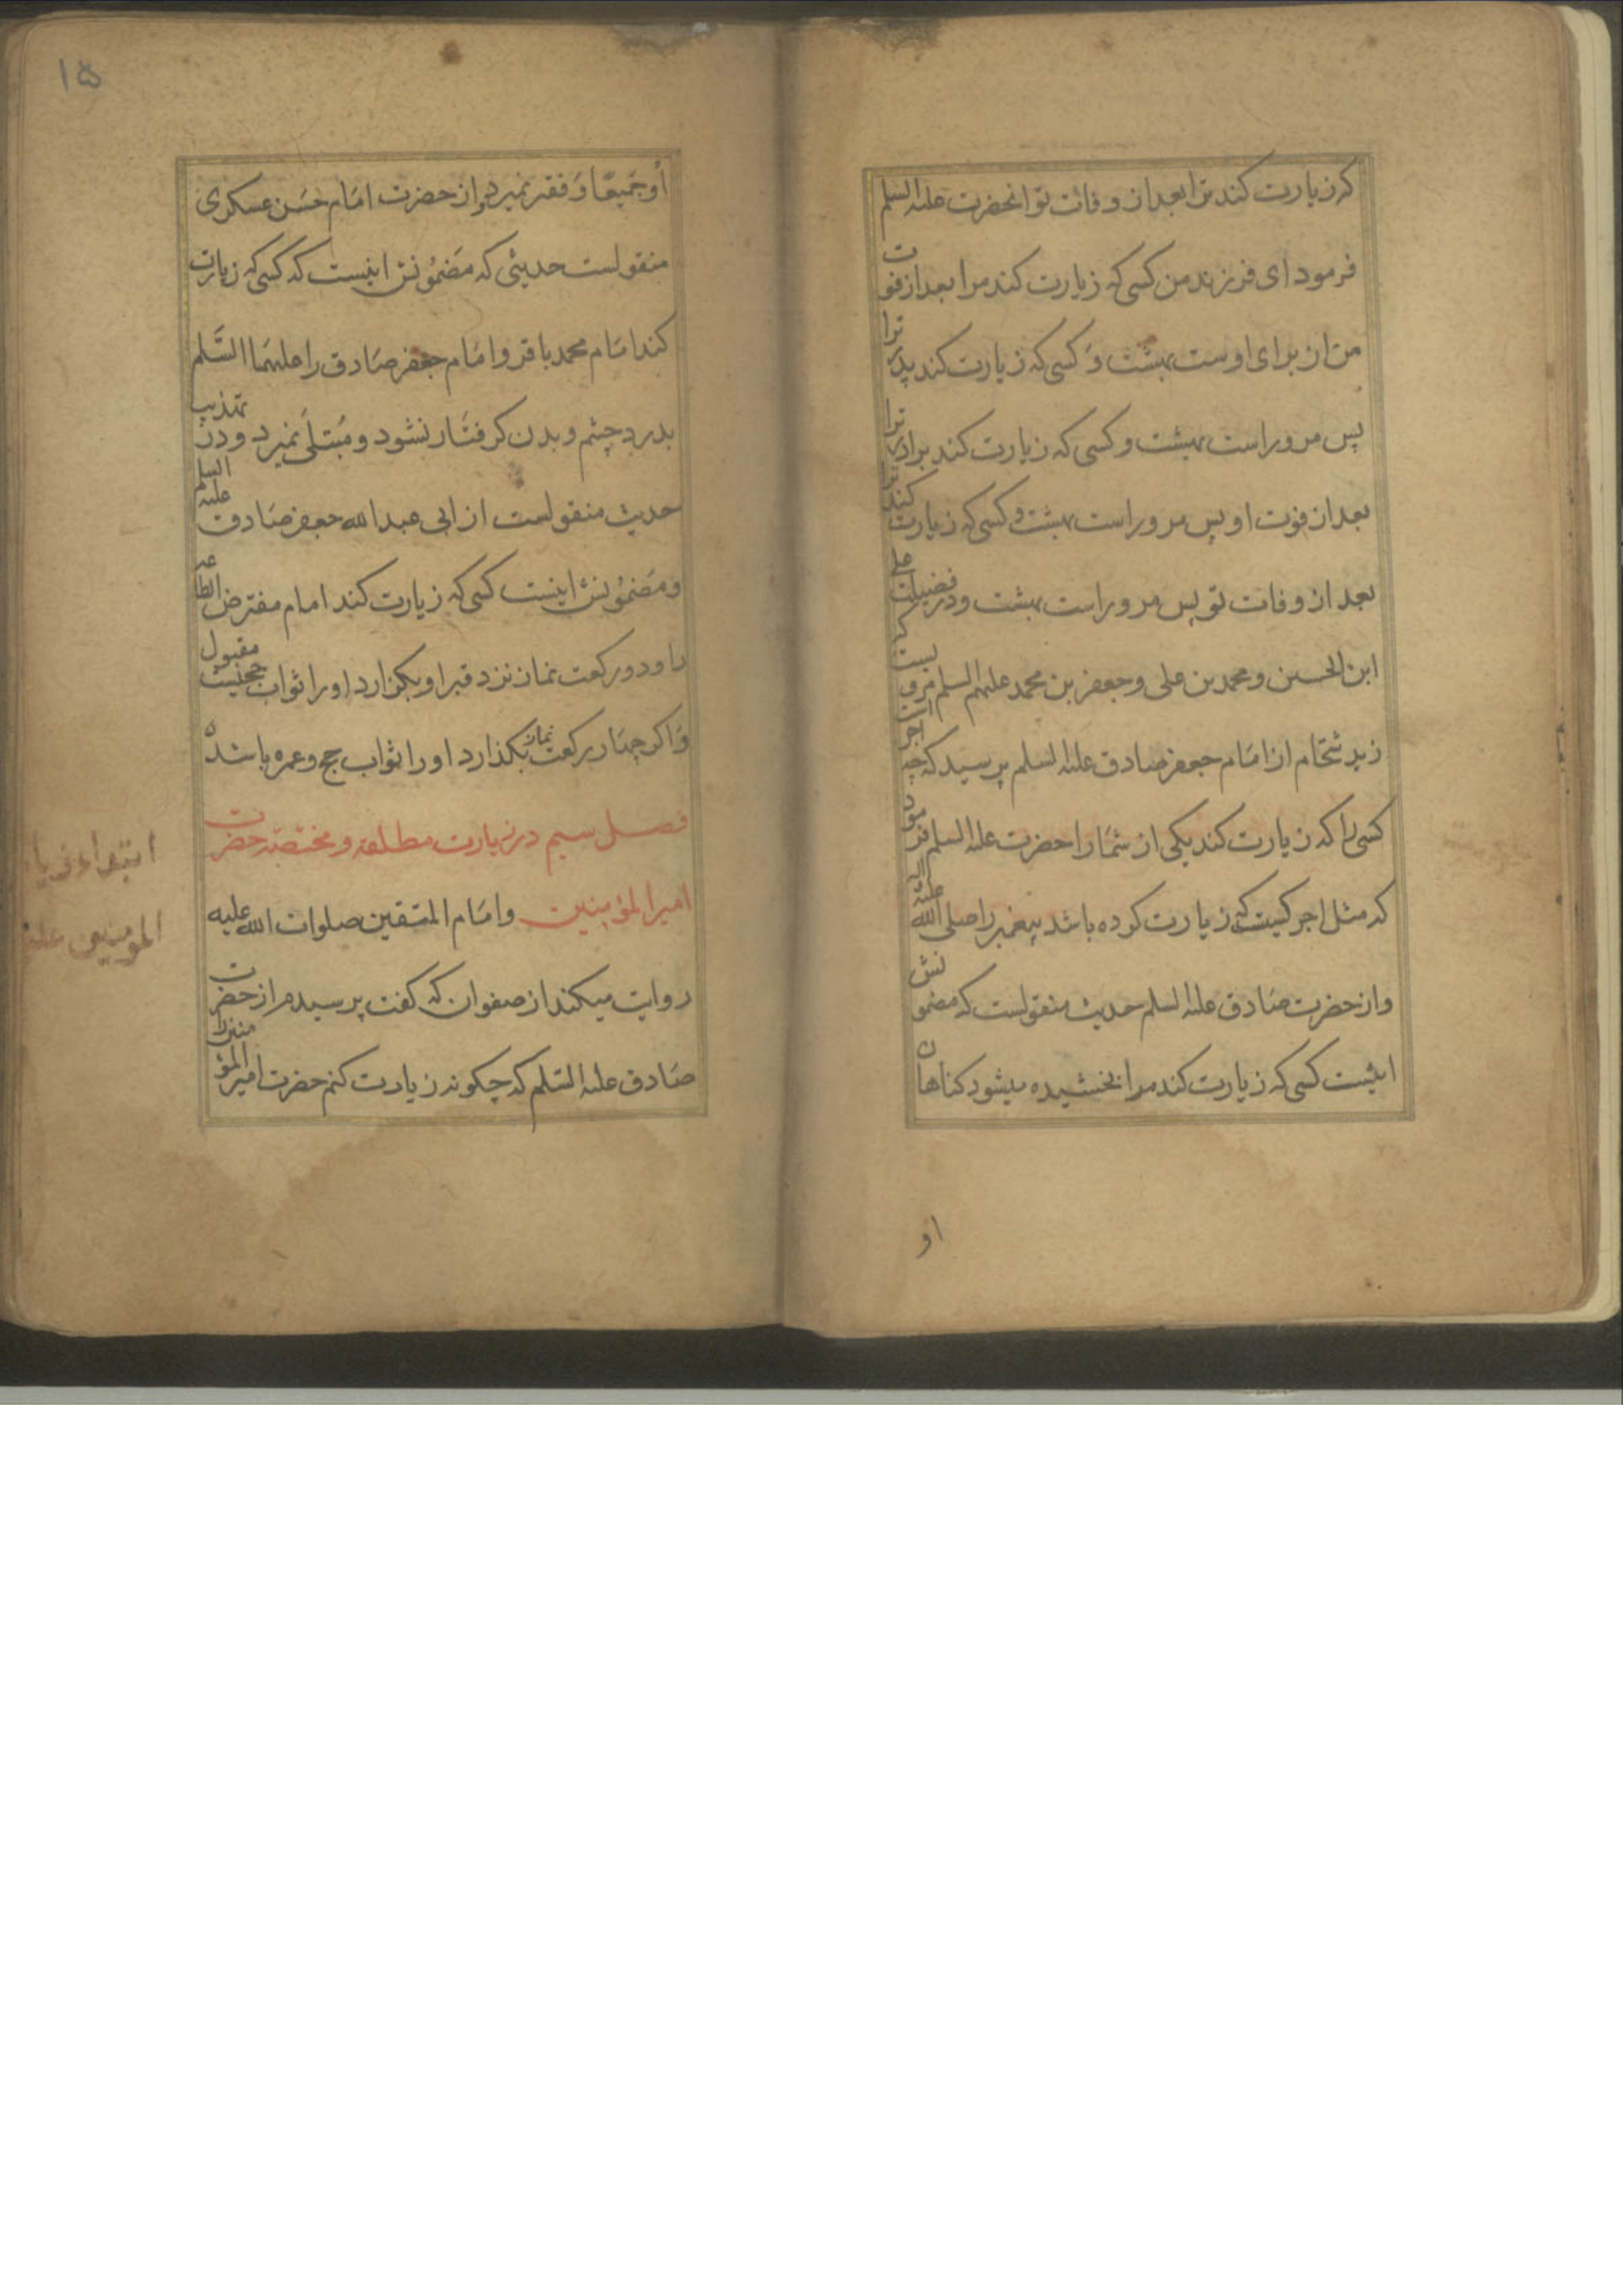 که زیارت کند ترا بعد از وفات تو انحضرت علیه السلم
فرمود ای فرزند من کسی که زیارت کند مرا بعد از فوت
من از برای اوست بهشت و کسی که زیارت کند پدر ترا
پس مر وراست بهشت و کسی که زیارت کند برادر ترا
بعد از فوت او پس مر وراست بهشت و کسی که زیارت کند ترا
بعد از وفات تو پس مر وراست بهشت و در فضیلت علی
ابن الحسین و محمد بن علی و جعفر بن محمد علیهم السلم مرویست که
زید شحّام از امام جعفر صادق علیه السلم پرسید که چه اجر است
کسی را که زیارت کند یکی از شما را حضرت علیه السلم فرمود
که مثل اجر کیست که زیارت کرده باشد پیغمبر را صلی الله علیه و اله
و از حضرت صادق علیه السلم حدیث منقولست که مضمونش
اینست کسی که زیارت کند مرا بخشیده میشود کناهان
او
۱۵
او جمیعًا و فقیر نمیرد و از حضرت امام حسن عسکری
منقولست حدیثی که مضمونش اینست که کسی که زیارت
کند امام محمد باقر و امام جعفر صادق را علیهما السّلم
بدرد چشم و بدن کرفتار نشود و مبتلی نمیرد و در تهذیب
حدیث منقولست از ابی عبدالله جعفر صادق علیه السلم
و مضمونش اینست کسی که زیارت کند امام مفترض الطاعه
را و دو رکعت نماز نزد قبر او بکزارد او را ثواب حج مقبول
و اکر چهار رکعت نماز بکذارد او را ثواب حج و عمره باشد
فصل سیم در زیارت مطلقه و مختصه حضرت
امیر المؤمنین و امام المتقین صلوات الله علیه
روایت میکند از صفوان که کفت پرسیدم از حضرت
صادق علیه السّلم که چکونه زیارت کنم حضرت امیر المؤمنین را
ابتداء زیا
المومنین علیه